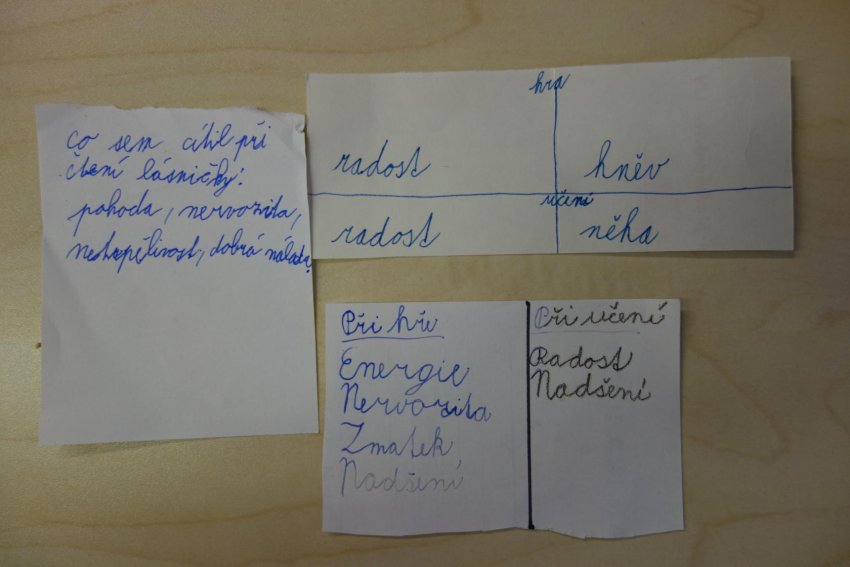 co sem cítil při
čtení básničky:
pohoda, nervozita,
netrpělivost, dobrá nálada
hra
radost hněv
učení
radost něha
Při hře
Energie
Nervozita
Zmatek
Nadšení
Při učení
Radost
Nadšení